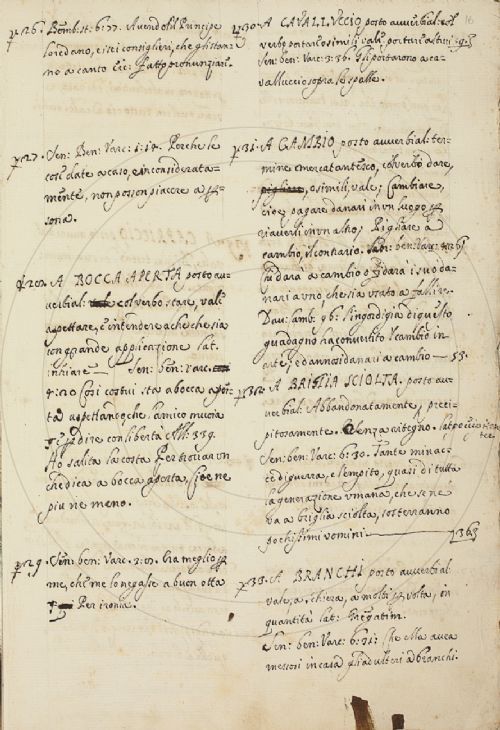 p. 26. Bemb: st: 6: 77. Avendo il Principe
loredano, e i sei consiglieri, che gli stan-
no a canto &c: fatto pronunziar.
p. 27. Sen: Ben: Varc: 1: 14. Perche le
cose date a caso, e inconsiderata-
mente, non posson piacere a per-
sona.
A BOCCA APERTA posto av-
verbial: col verbo stare, vale
aspettare, e intendere a che che sia
con grande applicazione lat.
inhiare — Sen: ben: Varc:
4: 20 Così costui sta a bocca aper-
ta aspettando che l'amico muoia
per dire con libertà All: 339.
Ho salita la costa Per trovar un
che dica a bocca aperta, Cioè ne
più ne meno.
p. 29. Sen: ben: Varc. 2: Era meglio per
me, che me lo negasse a buon otta
Per ironia.
p. 30. A CAVALLUCCIO posto avverbial: col
verbo portare, o simili vale, portare altrui
Sen: ben: Varc: 3: 36. Gli portarono a ca-
valluccio sopra le spalle.
16
p. 31. A CAMBIO posto avverbial: ter-
mine mercatantesco, col verbo dare,
o simili, vale; Cambiare,
cioè, pagare danari in un luogo, per
riaverli in un altro; Pigliare a
cambio, il contrario. Sen: ben: Varc:
chi darà a cambio o fiderà i suoi da-
nari a uno che sia usato a fallire.
Dav: camb: 96: l'ingordigia di questo
guadagno ha convertito l'cambio in
arte; e dannosi danari a cambio — 53.
p. 32. A BRIGLIA SCIOLTA. posto av-
verbial: Abbandonatamente, preci-
pitosamente. Senza ritegno.
Sen: ben: Varc: 6: 30. Tante minac-
ce di guerra, e l'empito, quasi di tutta
la generazione umana, che se ne
va a briglia sciolta, sotterranno
pochissimi uomini
p. 33. A BRANCHI posto avverbial
vale, a schiera, a molti per volta, in
quantità lat: Gregatim.
Sen: ben: Varc: 6: 32: Che ella avea
messoi in casa gli adulteri a branchi.